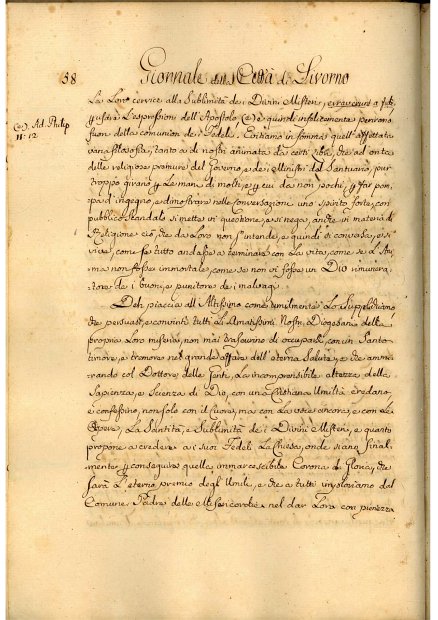 58 Giornale della Città di Livorno
La Loro cervice alla Sublimità dei Divini Misteri,
usare L'espressioni dell'Apostolo, (a) e quindi infelicemente perirono
(a). Ad. Philip
11: 12
fuori della comunion de' Fedeli. Evitiamo in somma quell'affettata
vana filosofia, tanto a dì nostri animata da certi libri, che ad onta
delle religiose premure del Governo, e dei Ministri del Santuario, pur
troppo girano per Le mani di molti, e per cui da non pochi, per far pom,
pa d'ingegno, e dimostrare nelle Conversazioni uno spirito forte, con
pubblico scandalo si mette in questione, e si nega, anche in materia di
Religione ciò, che da Loro non s'intende, e quindi si conversa, e si
vive, come se tutto andasse a terminare con La vita, come se L'Ani,
ma non fosse immortale, come se non vi fosse un Dio rimunera,
tore de i buoni, e punitore de i malvagi.
Deh piaccia all'Altissimo come umilmente Lo Supplichiamo
che persuasi, e convinti tutti Li Amatissimi Nostri Diogesani della
propria Loro miseria, non mai trascurino di occuparsi, con un Santo
timore, e tremore nel grande affare dell'eterna Salute, e che ammi
rando col Dottore delle Genti, La incomprensibile altezza della
Sapienza, e Scienza di Dio, con una Cristiana Umiltà credano,
e confessino, non solo con il Cuore, ma con La voce ancora, e con Le
Opere, La Santità, e Sublimità de i Divini Misteri, e quanto
propone a credere a i suoi Fedeli La Chiesa, onde siano final,
mente per conseguire quella immarcescibile Corona di Gloria, che
sarà L'eterno premio degl'Umili, e che a tutti imploriamo dal
Comune Padre delle Misericordie nel dar Loro con pienezza